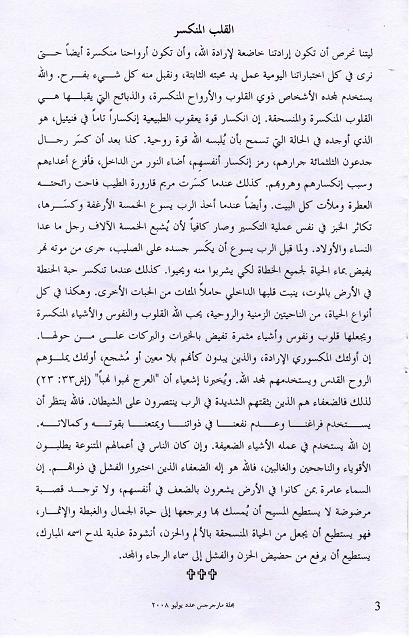 القلب المنكسر
ليتنا نحرص أن تكون إرادتنا خاضعة لإرادة الله، وأن تكون أرواحنا منكسرة أيضاً حتى
نرى في كل اختباراتنا اليومية عمل يد محبته الثابتة، ونقبل منه كل شيء بفرح. والله
يستخدم لمجده الأشخاص ذوي القلوب والأرواح المنكسرة، والذبائح التي يقبلها هي
القلوب المنكسرة والمنسحقة. إن انكسار قوة يعقوب الطبيعية إنكساراً تاماً في فنيئيل، هو
الذي أوجده في الحالة التي تسمح بأن يُلبسه الله قوة روحية. كذا بعد أن كسَر رجال
جدعون الثلثمائة جرارهم، رمز إنكسار أنفسِهم، أضاء النور من الداخل، فأفزع أعداءهم
وسبب إنكسارهم وهروبهم. كذلك عندما كسَرت مريم قارورة الطيب فاحت رائحته
العطرة وملأت كل البيت. وأيضاً عندما أخذ الرب يسوع الخمسة الأرغفة وكسَرها،
تكاثر الخبز في نفس عملية التكسير وصار كافياً لأن يُشبع الخمسة الآلاف رجل ما عدا
النساء والأولاد. ولما قبل الرب يسوع أن يكَسر جسده على الصليب، جرى من موته نهر
يفيض بماء الحياة لجميع الخطاة لكي يشربوا منه ويحيوا. كذلك عندما تنكسر حبة الحنطة
في الأرض بالموت، ينبت قلبها الداخلي حاملاً المئات من الحبات الأخرى. وهكذا في كل
أنواع الحياة، من الناحيتين الزمنية والروحية، يحب الله القلوب والنفوس والأشياء المنكسرة
ويجعلها قلوب ونفوس وأشياء مثمرة تفيض بالخيرات والبركات على من حولها.
إن أولئك المكسوري الإرادة، والذين يبدون كأنهم بلا معين أو مُشجع، أولئك يملؤهم
الروح القدس ويستخدمهم لمجد الله. ويُخبرنا إشعياء أن "العرج نهبوا نهباً" (إش٣٣: ٢٣)
لذلك فالضعفاء هم الذين بثقتهم الشديدة في الرب ينتصرون على الشيطان. فالله ينتظر أن
يستخدم فراغنا وعدم نفعنا في ذواتنا ويمتعنا بقوته وكمالاته.
إن الله يستخدم في عمله الأشياء الضعيفة. وإن كان الناس في أعمالهم المتنوعة يطلبون
الأقوياء والناجحين والغالبين، فالله هو إله الضعفاء الذين اختبروا الفشل في ذواتهم. إن
السماء عامرة بمن كانوا في الأرض يشعرون بالضعف في أنفسهم، ولا توجد قصبة
مرضوضة لا يستطيع المسيح أن يُمسك بها ويرجعها إلى حياة الجمال والغبطة والإثمار،
فهو يستطيع أن يجعل من الحياة المنسحقة بالألم والحزن، أنشودة عذبة لمدح اسمه المبارك،
يستطيع أن يرفع من حضيض الحزن والفشل إلى سماء الرجاء والمجد.
مجلة مارجرجس عدد يوليو ٢٠٠٨
3